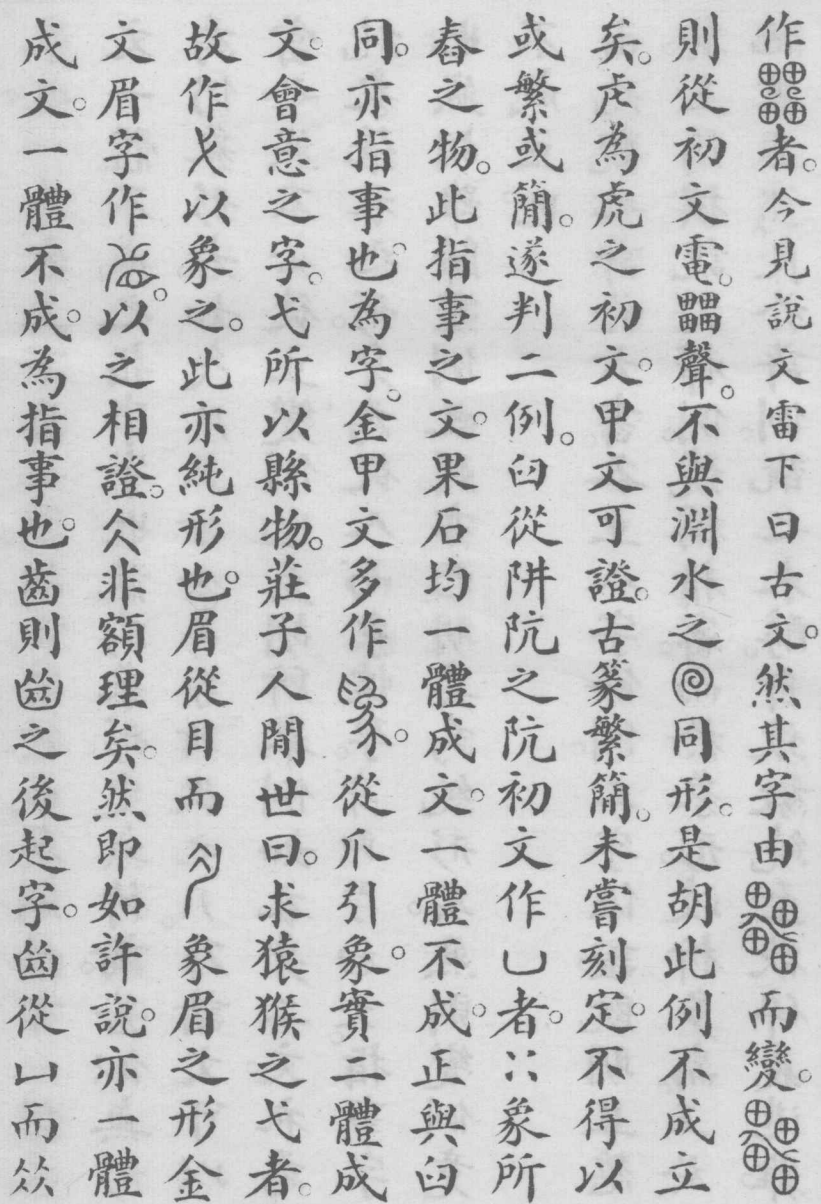 作者。今見說文雷下曰古文。然其字由而變。
則從初文電。畾聲。不與淵水之同形。是胡此例不成立
矣。虍為虎之初文。甲文可證。古篆繁簡。未嘗刻定。不得以
或繁或簡。遂判二例。臼從阱阬之阬初文作凵者。象所
舂之物。此指事之文。果石均一體成文。一體不成。正與臼
同。亦指事也。為字。金甲文多作。從爪引象。實二體成
文。會意之字。弋所以縣物。莊子人閒世曰。求猿猴之弋者。
故作以象之。此亦純形也。眉從目而象眉之形金
文眉字作。以之相證。仌非額理矣。然即如許說。亦一體
成文。一體不成。為指事也。齒則之後起字。從凵而